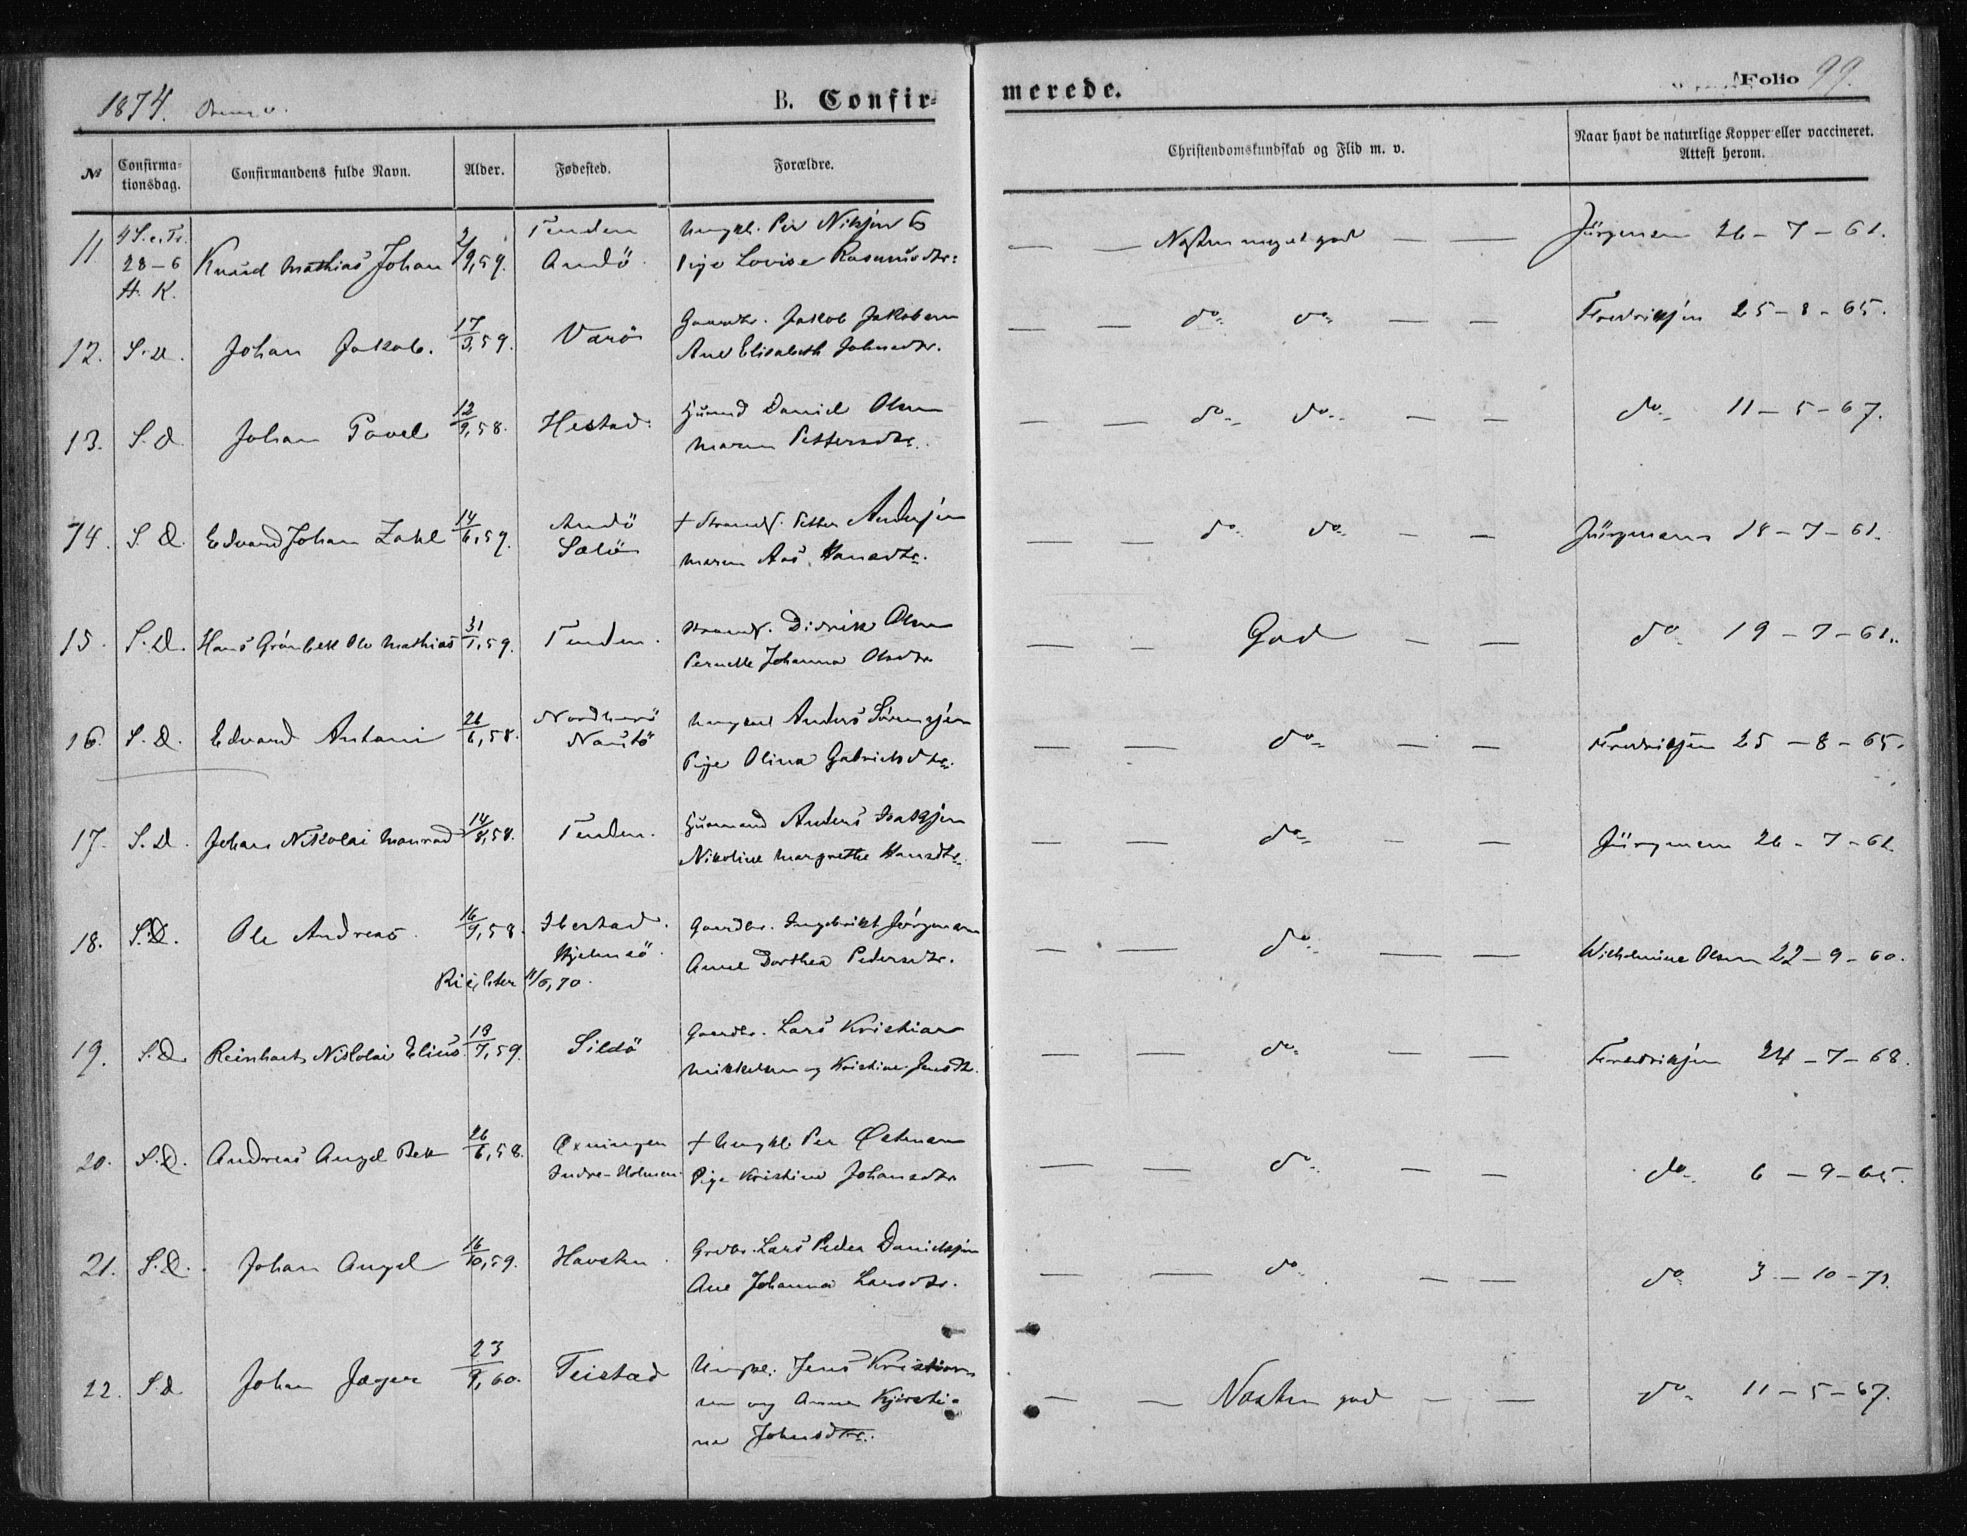 1874.
B. Confir-
merede.
Folio 99.
№ Confirma-tionsdag. Confirmandens fulde Navn. Alder. Fødested. Forældre. Christendomskundskab og Flid m. v. Naar havt de naturlige Kopper eller vaccineret. Attest herom.
4 S. e. Tr. Tenden Ungkl. Per
11 28-6 Knud Mathias Johan 2/9,59. Andö Pige Lovise Rasmusdtr: — — Næsten meget god — — Jürgensen 26-7-61.
H. K.
Gaardbr. Jakob Jakobsen
12. S. D. Johan Jakob. 17/3,59. Varö Ane Elisabeth Johnsdtr. — — do do — — Fredriksen 25-8-65.
Husmd Daniel Olsen
13. S. D. Johan Povel 12/9,58. Hestad. Maren Pettersdtr. — — do do — — do 11-5-67.
Andö + Strands. Petter Andersen
14. S. D. Edvard Johan Zahl 14/6,59. Sælö Maren Aas. Hansdtr. — — do do — — Jürgensen 18-7-61.
Strands. Didrik Olsen
15. S. D. Hans Grönbek Ole Mathias 31/1,59. Tenden. Pernelle Johanna Olsdtr — — God — — do 19-7-61.
Ungkarl Anders Sörensen
16. S. D. Edvard Antoni 26/6,58. Pige Olina Gabrielsdtr. — — do — — Fredriksen 25-8-65.
Husmand Anders Isaksen
17. S. D. Johan Nikolai Monrad 14/8,58. Tenden. Nikoline Margrethe Hansdtr. — — do — — Jürgensen 26-7-61
Ibestad. Gaardbr. Ingebrikt Jörgensen
18. S. D. Ole Andreas 16/9,58. Hjelmsö. Anne Dorthea Pedersdtr. — — do — — Wilhelmine Olsen 22-9-60.
11/6,70.
Gaardbr. Lars Kristian
19. S. D. Reinhart Nikolai Elius 19/7,59. Sildö Mikkelsen og Kristine Jensdtr. — — do — — Fredriksen 24-7-68.
Öxningen + Ungkl. Per Östman
20. S. D. Andreas Angel Bek 26/6,58. Indre-Holmen. Pige Kristine Johansdtr — — do — — do 6-9-65.
Grdbr. Lars Peder Danielsen
21. S. D. Johan Angel 16/10,59. Havsten. Ane Johanna Larsdtr. — — do — — do 3-10-71.
Ungkl. Jens Kristian-
22. S. D. Johan Jæger 23/9,60. Teistad sen og Anne Kjersti- — — Næsten god — — do 11-5-67.
na Johnsdtr.